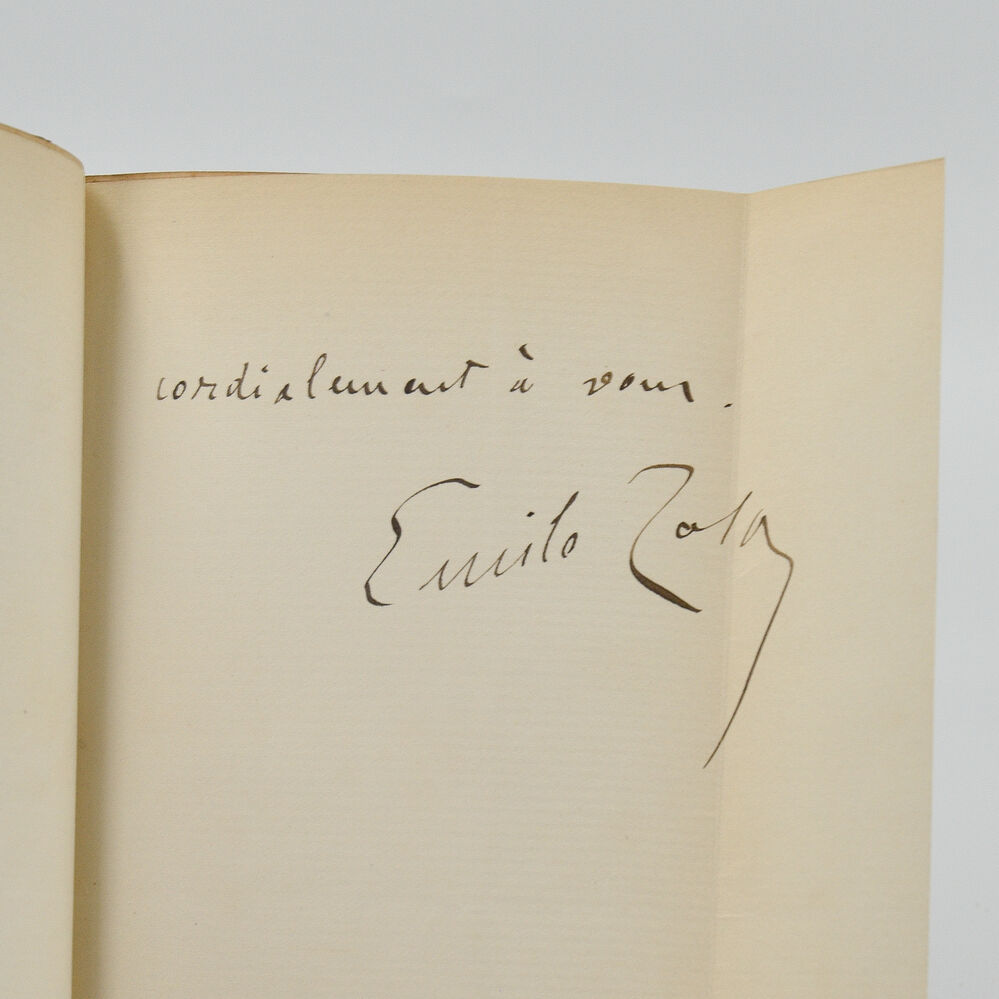 cordialement à vous.
Emile Zola